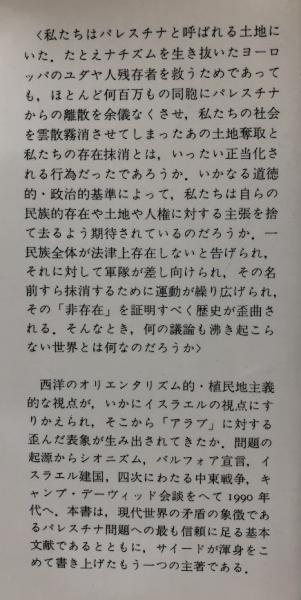 〈私たちはパレスチナと呼ばれる土地に
いた．たとえナチズムを生き抜いたヨーロ
ッパのユダヤ人残存者を救うためであって
も，ほとんど何百万もの同胞にパレスチナ
からの離散を余儀なくさせ，私たちの社会
を雲散霧消させてしまったあの土地奪取と
私たちの存在抹消とは，いったい正当化さ
れる行為だったであろうか．いかなる道徳
的・政治的基準によって，私たちは自らの
民族的存在や土地や人権に対する主張を捨
て去るよう期待されているのだろうか．一
民族全体が法律上存在しないと告げられ，
それに対して軍隊が差し向けられ，その名
前すら抹消するために運動が繰り広げられ，
その「非存在」を証明すべく歴史が歪曲さ
れる．そんなとき，何の議論も沸き起こら
ない世界とは何なのだろうか〉
西洋のオリエンタリズム的・植民地主義
的な視点が，いかにイスラエルの視点にす
りかえられ，そこから「アラブ」に対する
歪んだ表象が生み出されてきたか．問題の
起源からシオニズム，バルフォア宣言，イ
スラエル建国，四次にわたる中東戦争，キ
ャンプ・デーヴィッド会談をへて1990年
代へ．本書は，現代世界の矛盾の象徴であ
るパレスチナ問題への最も信頼に足る基本
文献であるとともに，サイードが渾身をこ
めて書き上げたもう一つの主著である．